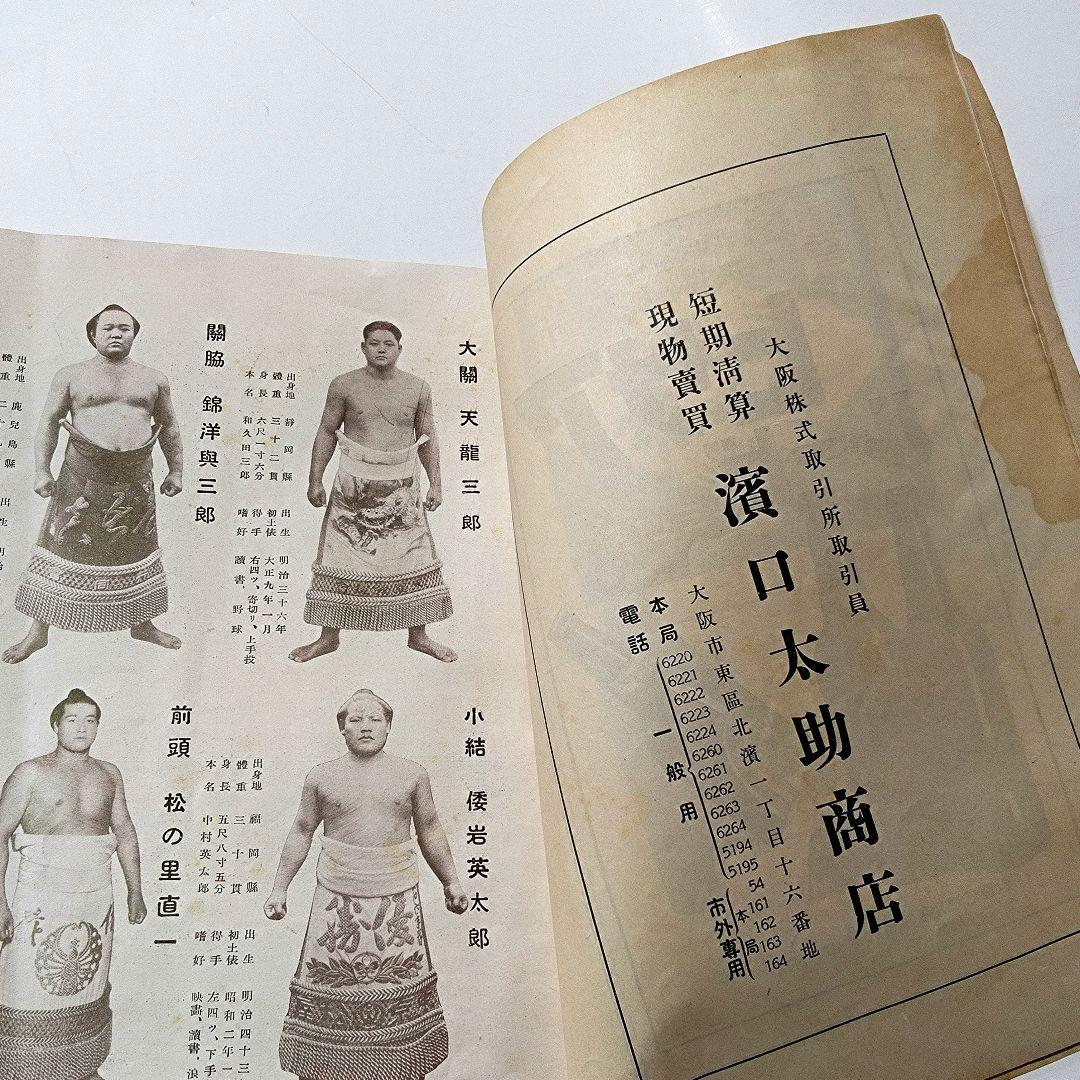 大阪株式取引所取引員
短期清算
現物賣買
濱口太助商店
大阪市東區北濱一丁目十六番地
電話
本局
6220
6221
6222
6223
6224
6260
6261
6262
6263
6264
5194
5195
一般用
54
161
162
163
164
本局
市外專用
大關 天龍三郎
出身地 靜岡縣
體重 三十二貫
身長 六尺一寸六分
本名 和久田三郎
出生 明治三十六年
初土俵 大正九年一月
得手 右四ツ、寄切リ、上手投
嗜好 讀書、野球
關脇 錦洋與三郎
出身地 鹿兒島縣
體重 二十
出生 明治
小結 倭岩英太郎
出身地 福岡縣
體重 三十貫
身長 五尺八寸五分
本名 中村英太郎
出生 明治四十三
初土俵 昭和二年一
得手 左四ツ、下手
嗜好 映畫、讀書、浪
前頭 松の里直一